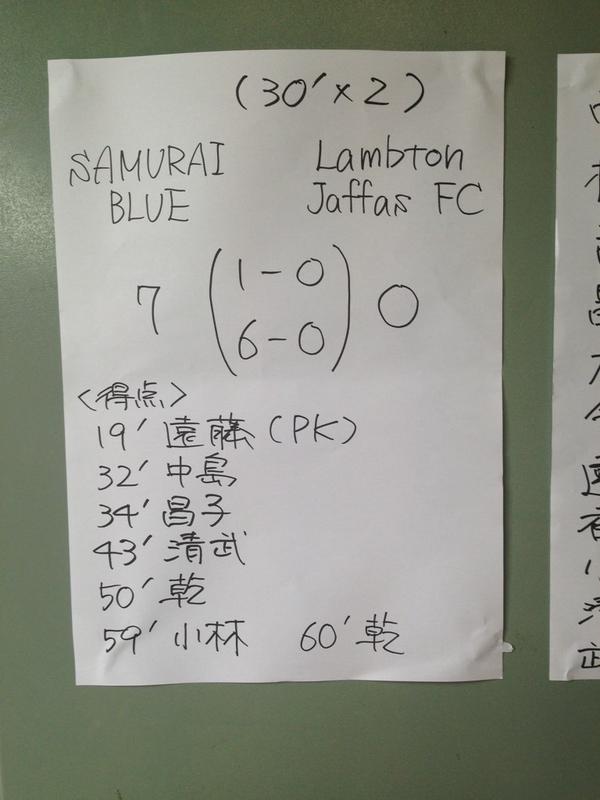 (30'×2)
SAMURAI BLUE
Lambton Jaffas FC
7 (1-0 6-0) 0
<得点>
19' 遠藤 (PK)
32' 中島
34' 昌子
43' 清武
50' 乾
59' 小林 60' 乾